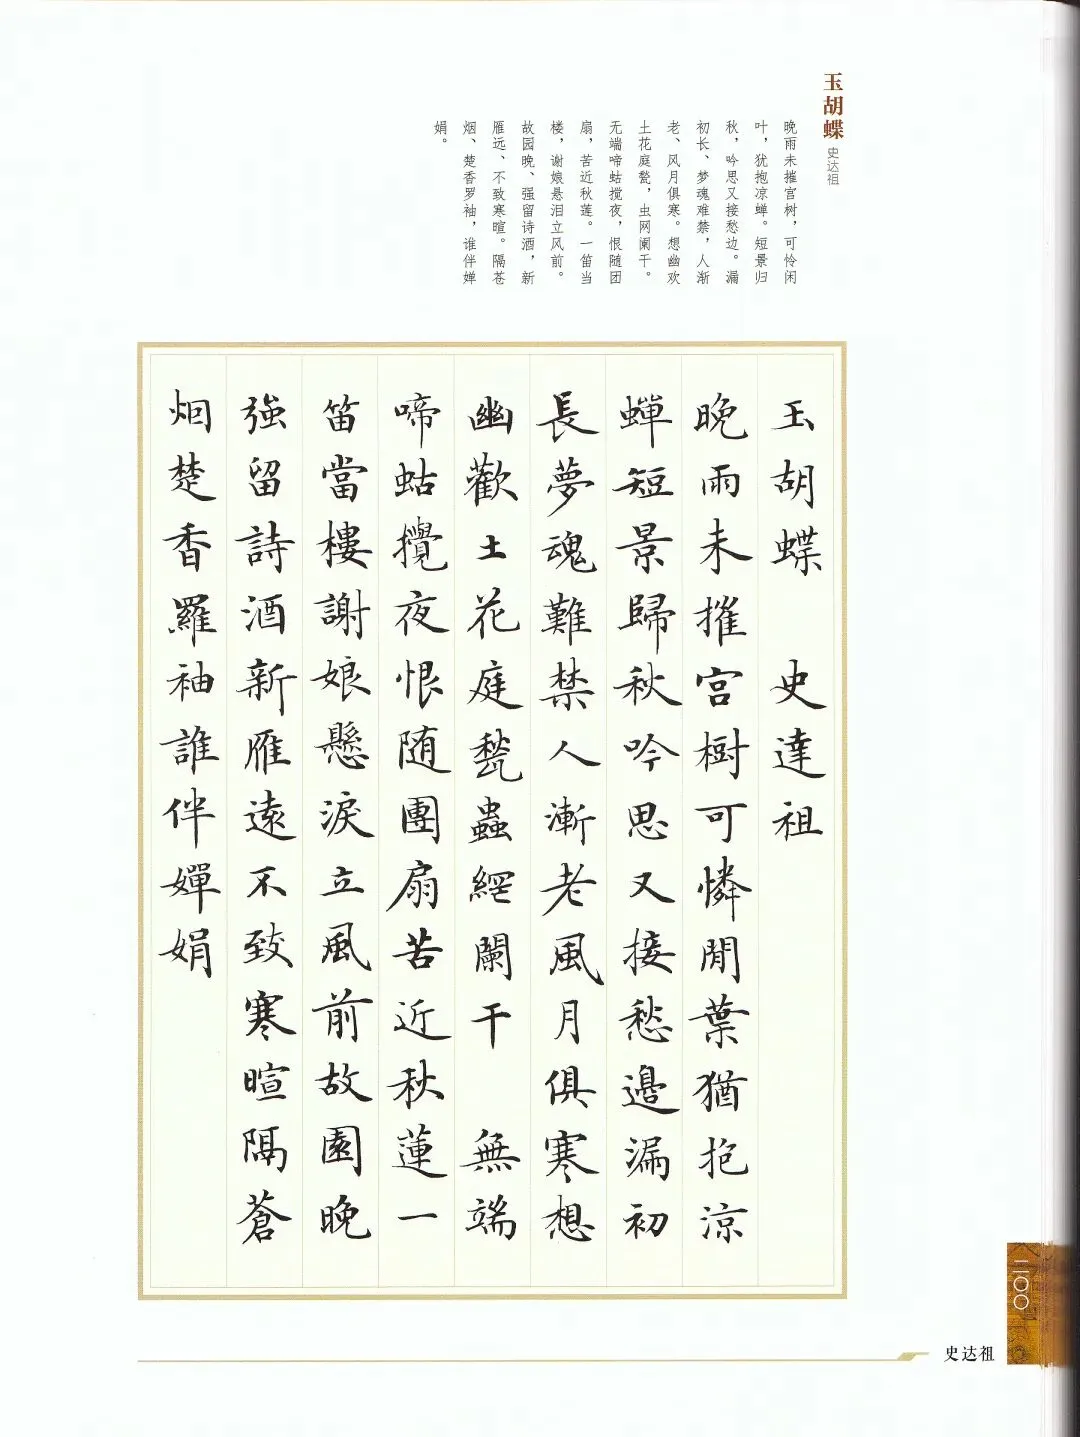 玉胡蝶 史达祖
晚雨未摧宫树，可怜闲
叶，犹抱凉蝉。短景归
秋，吟思又接愁边。漏
初长、梦魂难禁，人渐
老、风月俱寒。想幽欢
土花庭甃，虫网阑干。
无端啼蛄搅夜，恨随团
扇，苦近秋莲。一笛当
楼，谢娘悬泪立风前。
故园晚、强留诗酒，新
雁远、不致寒暄。隔苍
烟、楚香罗袖，谁伴婵
娟。
玉胡蝶 史達祖
晚雨未摧宫樹可憐閒葉猶抱涼
蟬短景歸秋吟思又接愁邊漏初
長夢魂難禁人漸老風月俱寒想
幽歡土花庭甃蟲網闌干 無端
啼蛄攪夜恨随團扇苦近秋蓮一
笛當樓謝娘懸淚立風前故園晚
強留詩酒新雁遠不致寒暄隔蒼
烟楚香羅袖誰伴嬋娟
史达祖
二〇〇